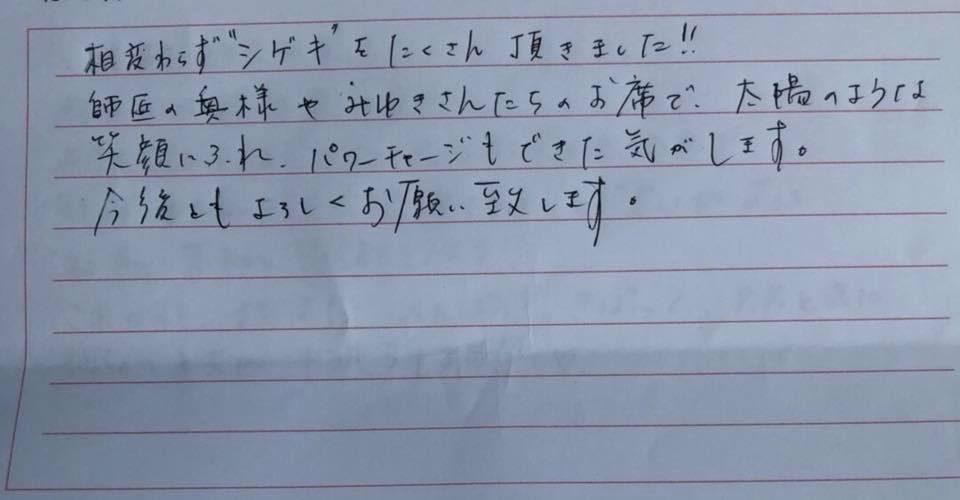 相変わらず"シゲキ"をたくさん頂きました!!
師匠の奥様やみゆきさんたちのお席で、太陽のような
笑顔にふれ、パワーチャージもできた気がします。
今後ともよろしくお願い致します。